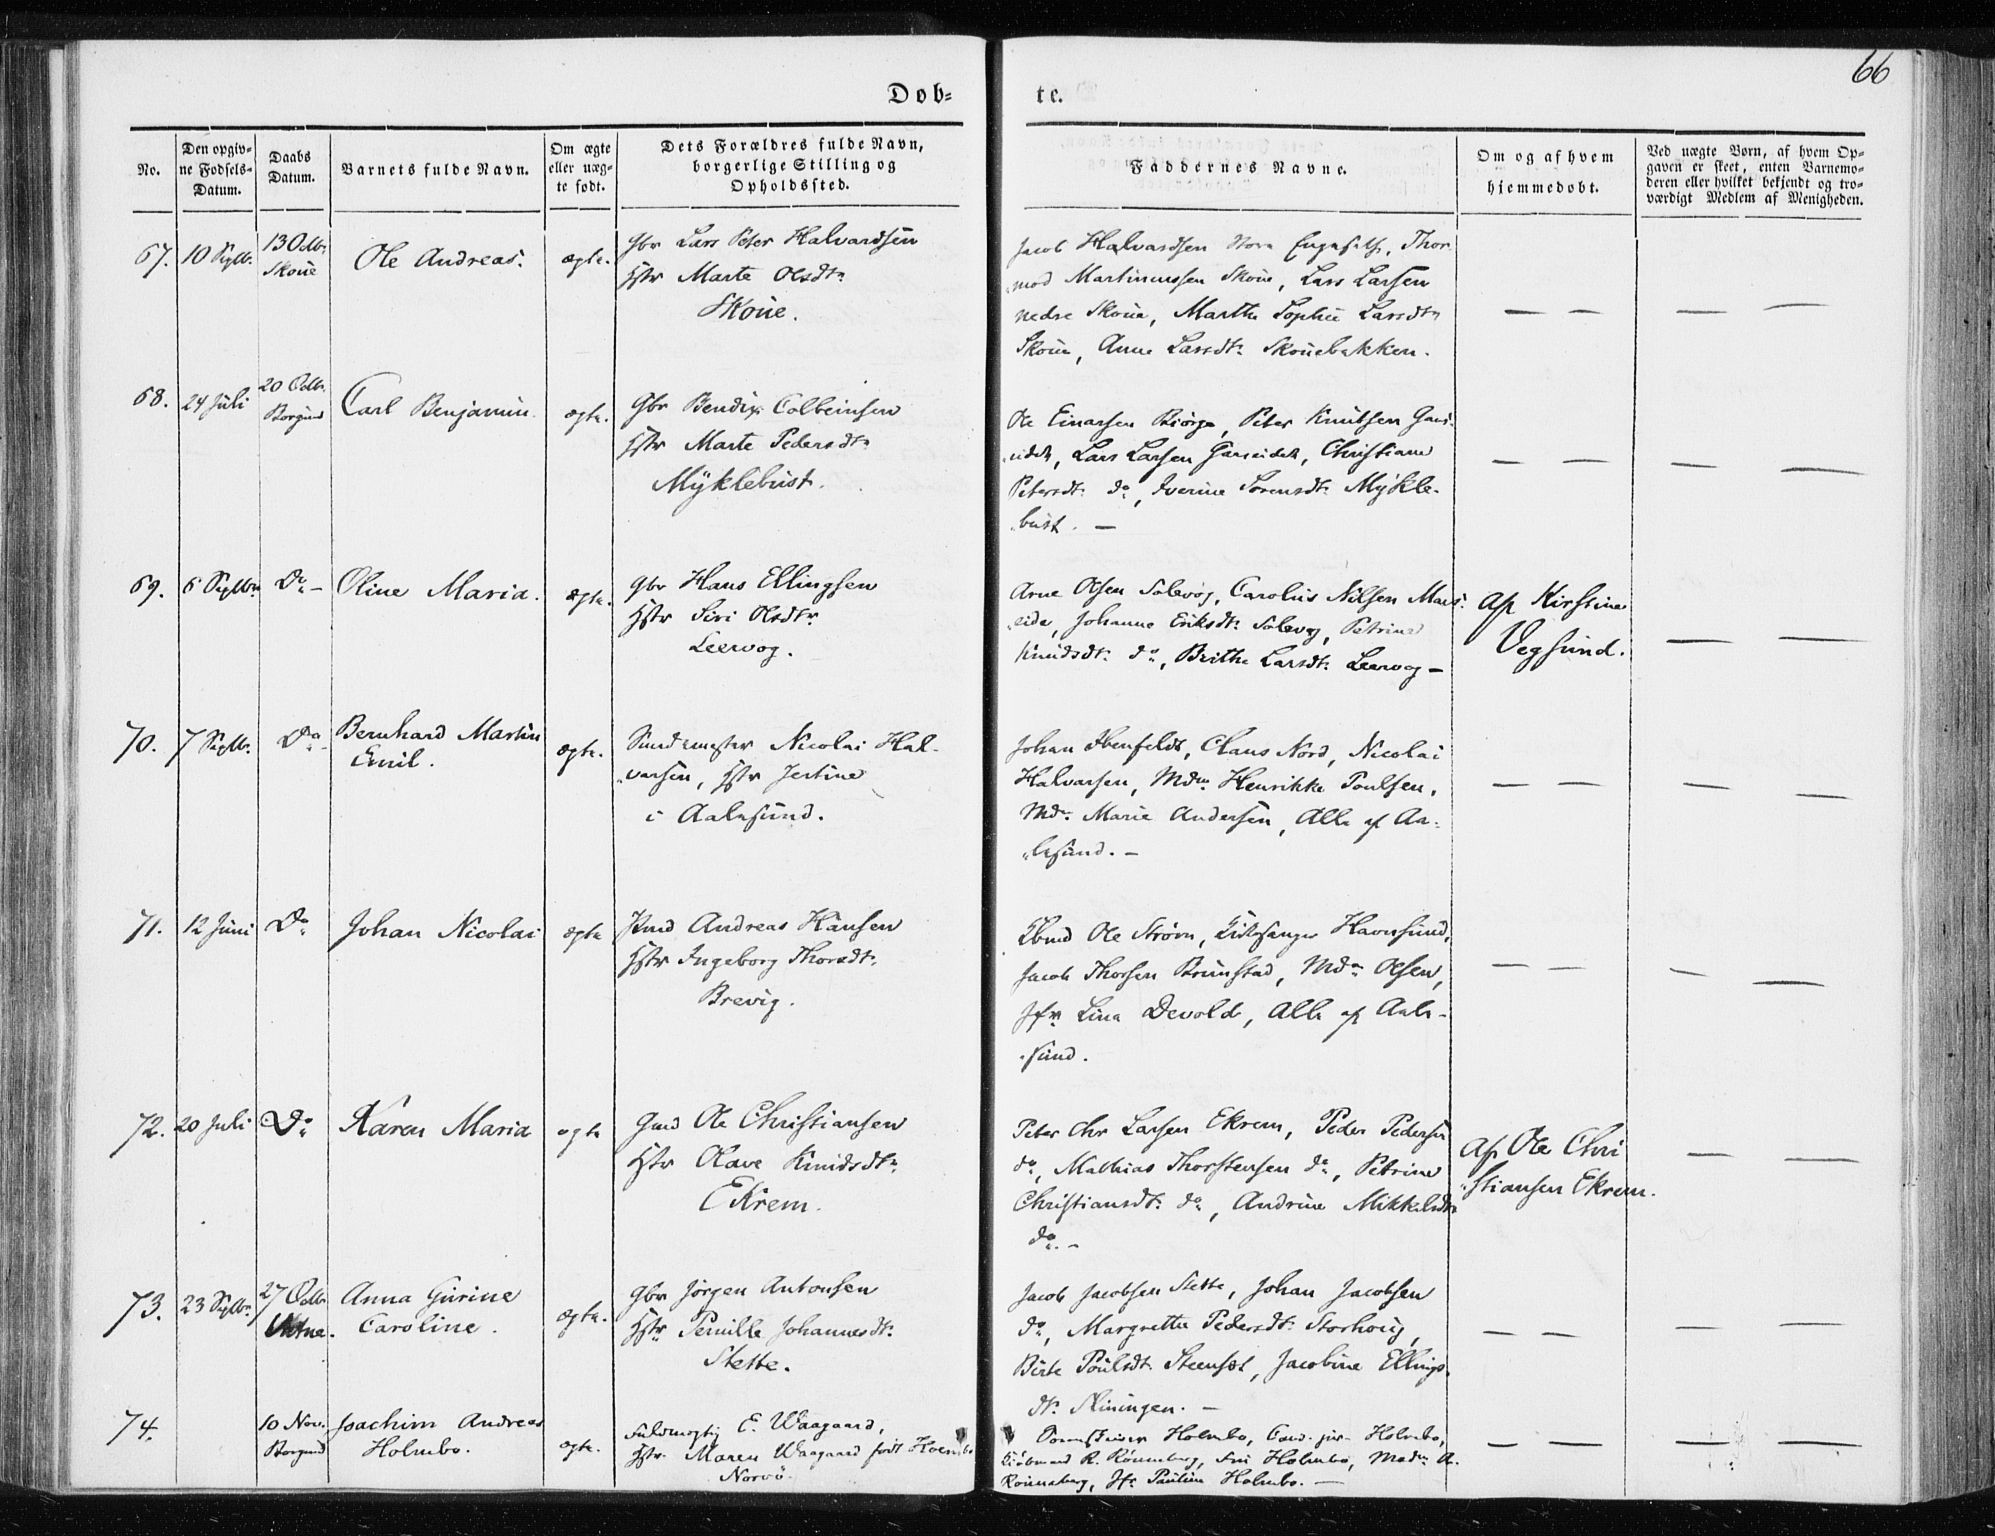 66
Døb=
te.
No.
Den opgiv=
ne Fødsels=
Datum.
Daabs
Datum.
Barnets fulde Navn.
Om ægte
eller uæg=
te født.
Dets Forældres fulde Navn,
borgerlige Stilling og
Opholdssted.
Faddernes Navne.
Om og af hvem
hjemmedøbt.
Ved uægte Børn, af hvem Op=
gaven er skeet, enten Barnemo=
deren eller hvilket bekjendt og tro=
værdigt Medlem af Menigheden.
67. 10 Septb. 13 Octbr. Skoue
Ole Andreas. ægte.
Gbr Lars Peter Halvardsen
Hstr Marte Olsdtr
Skoue.
Jacob Halvardsen Store , Thor
mod Martinussen Skoue, Lars Larsen
nedre Skoue, Marthe Sophie Larsdtr
Skoue, Anne Larsdtr Skouebakken.
68. 24 Juli 20 Octbr. Borgund
Carl Benjamin. ægte.
Gbr Bendix Colbeinsen
Hstr Marte Pedersdtr
Myklebust.
Ole Einarsen Biørge, Peter Knutsen Gaus
eidet, Lars Larsen Gauseidet, Christiane
Petersdtr do, Iverine Sorensdtr Mykle-
bust. —
69. 6 Septbr. Do —
Oline Maria. ægte.
Gbr Hans Ellingsen
Hstr Siri Olsdtr
Leervog.
Arne Olsen Solevog, Carolus Nilsen Maus
eide, Johanne Eriksdtr Solevog, Petrine
Knudsdtr do, Brithe Larsdtr Leervog —
Af Kirstine
Vegsund.
70. 7 Septbr. Do
Bernhard Martin
Emil. ægte.
Nicolai Hal-
varsen, Hstr Jertine
i Aalesund.
Johan Ibenfeldt, Claus Nord, Nicolai
Halvarsen, Mdm Henrikke Poulsen,
Mdm Marie Andersen, Alle af Aa-
lesund. —
71. 12 Juni Do
Johan Nicolai ægte
Andreas Hansen
Hstr Ingeborg Thorsdtr.
Brevig.
Kbmd Ole Strøm, Kirkesanger Havnsund,
Jacob Thorsen Brunstad, Mdm Olsen,
Jfr Lina Devold, Alle af Aale-
sund.
72. 20 Juli Do
Karen Maria ægte
Gmd Ole Christiansen
Hstr Olave Knudsdtr
Ekrem.
Peter Chr Larsen Ekrem, Peder Pedersen
do, Mathias Thorstensen do, Petrine
Christiansdtr do, Andrine Mikkelsdtr
do. —
Af Ole Chri
stiansen Ekrem.
73. 23 Septbr. 27 Octbr.
Anna Gurine
Caroline. ægte.
Gbr Jørgen Antonsen
Hstr Pernille Johannesdtr.
Stette.
Jacob Jacobsen Stette, Johan Jacobsen
do, Margrethe Pedersdtr Storhoug,
Birte Poulsdtr Steenset, Jacobine Ellings-
dtr . —
74. 10 Nov. Borgund
Joachim Andreas
Holmbo. ægte.
Fuldmægtig E. Waagaard,
Hstr Maren Waagaard født Holmbo
Nørvø.
Holmbo, Cand. jur. Holmbo,
Kiøbmand R. Rønneberg, Fru Holmbo, Madm A.
Rønneberg, Jfr Pauline Holmbo. —